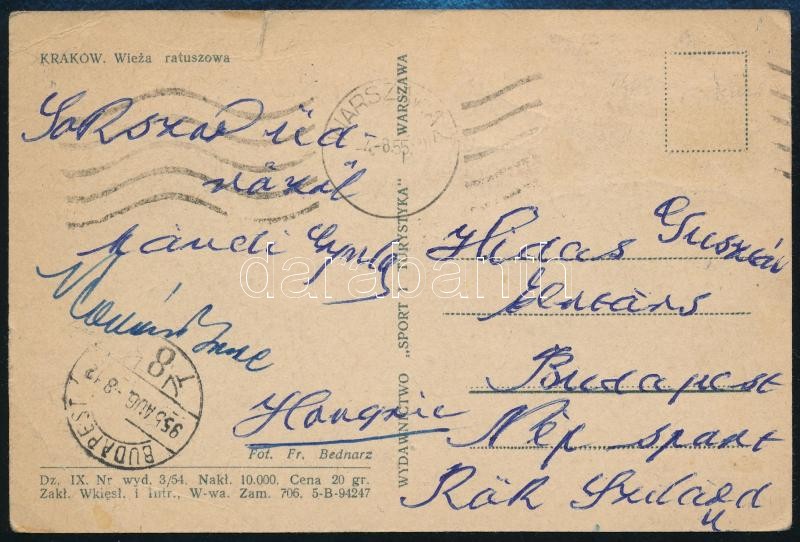 KRAKÓW. Wieża ratuszowa
Sokszor üd-
vözöl
Mándi Gyula
WARSZAWA
-4-8.55
WYDAWNICTWO „SPORT I TURYSTYKA" WARSZAWA
Hidas Gusztáv
Budapest
Nép sport
Rök Szilárd
u
Hongrie
BUDAPEST
AUG.-8.12
Fot. Fr. Bednarz
Dz. IX. Nr wyd. 3/54. Nakł. 10.000. Cena 20 gr.
Zakł. Wklęsł. i Intr., W-wa. Zam. 706. 5-B-94247
darabanth